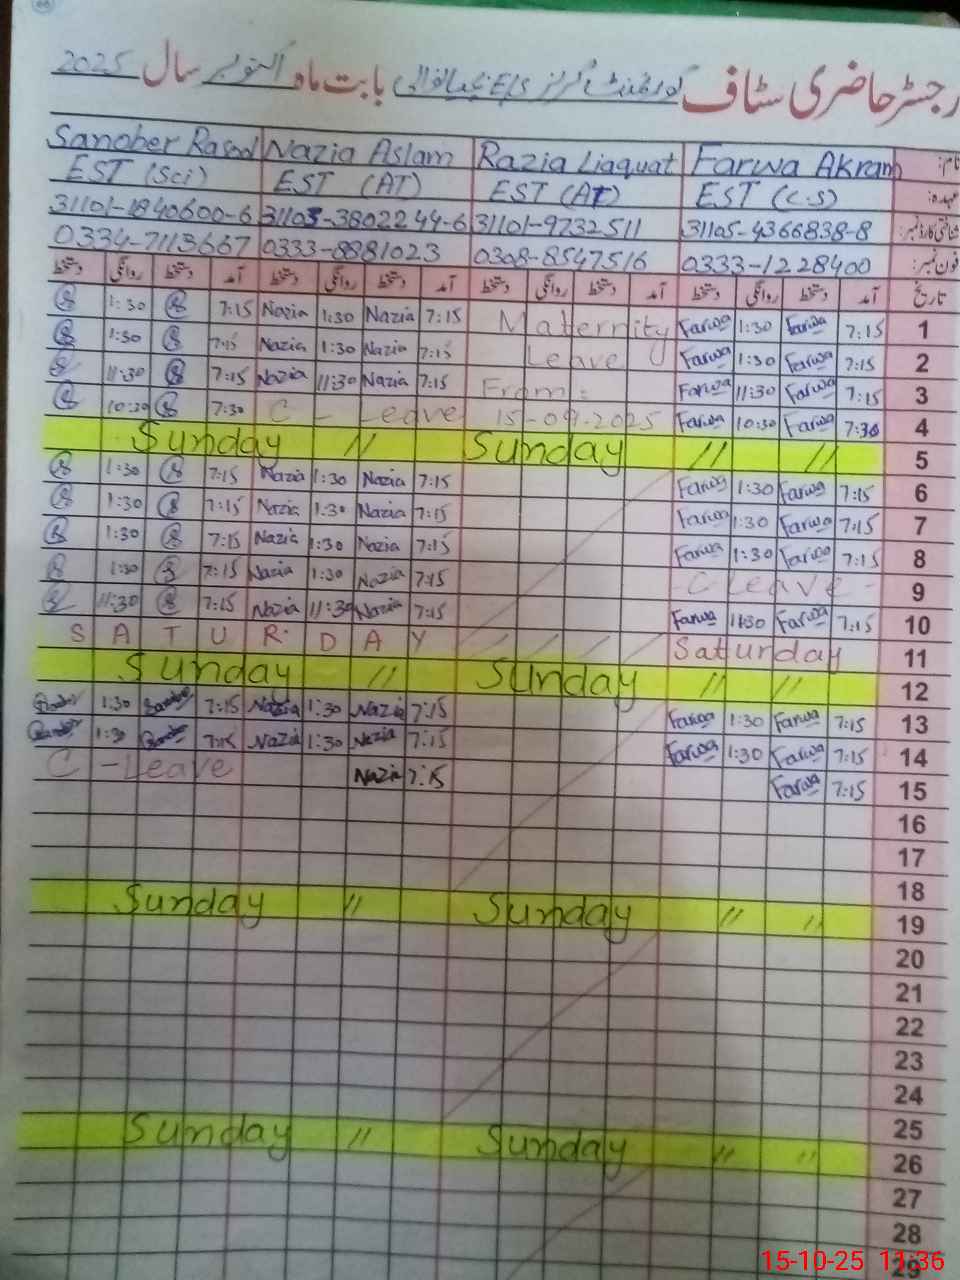 رجسٹر حاضری سٹاف گورنمنٹ گرلز E/S بابت ماہ اکتوبر سال 2025
Sanober Rasool Nazia Aslam Razia Liaquat Farwa Akram نام:
EST (Sci) EST (AT) EST (AT) EST (C.S) عہدہ:
31101-1840600-6 31105-3802244-6 31101-9732511 31105-4366838-8 شناختی کارڈ نمبر:
0334-7113667 0333-8881023 0308-8547516 0333-1228400 فون نمبر:
دستخط روانگی دستخط آمد دستخط روانگی دستخط آمد دستخط روانگی دستخط آمد دستخط روانگی دستخط آمد تاریخ
1:30 7:15 Nazia 1:30 Nazia 7:15 Maternity Farwa 1:30 Farwa 7:15 1
1:30 7:15 Nazia 1:30 Nazia 7:15 Leave Farwa 1:30 Farwa 7:15 2
11:30 7:15 Nazia 11:30 Nazia 7:15 From: Farwa 11:30 Farwa 7:15 3
10:30 7:30 C - Leave 15-09-2025 Farwa 10:30 Farwa 7:30 4
Sunday // Sunday // // 5
1:30 7:15 Nazia 1:30 Nazia 7:15 Farwa 1:30 Farwa 7:15 6
1:30 7:15 Nazia 1:30 Nazia 7:15 Farwa 1:30 Farwa 7:15 7
1:30 7:15 Nazia 1:30 Nazia 7:15 Farwa 1:30 Farwa 7:15 8
1:30 7:15 Nazia 1:30 Nazia 7:15 C Leave - 9
11:30 7:15 Nazia 11:30 Nazia 7:15 Farwa 11:30 Farwa 7:15 10
S A T U R D A Y Saturday 11
Sunday // Sunday // // 12
1:30 7:15 Nazia 1:30 Nazia 7:15 Farwa 1:30 Farwa 7:15 13
1:30 7:15 Nazia 1:30 Nazia 7:15 Farwa 1:30 Farwa 7:15 14
C - Leave Nazia 7:15 Farwa 7:15 15
16
17
18
Sunday // Sunday // // 19
20
21
22
23
24
25
Sunday // Sunday // // 26
27
28
29
15-10-25 11:36